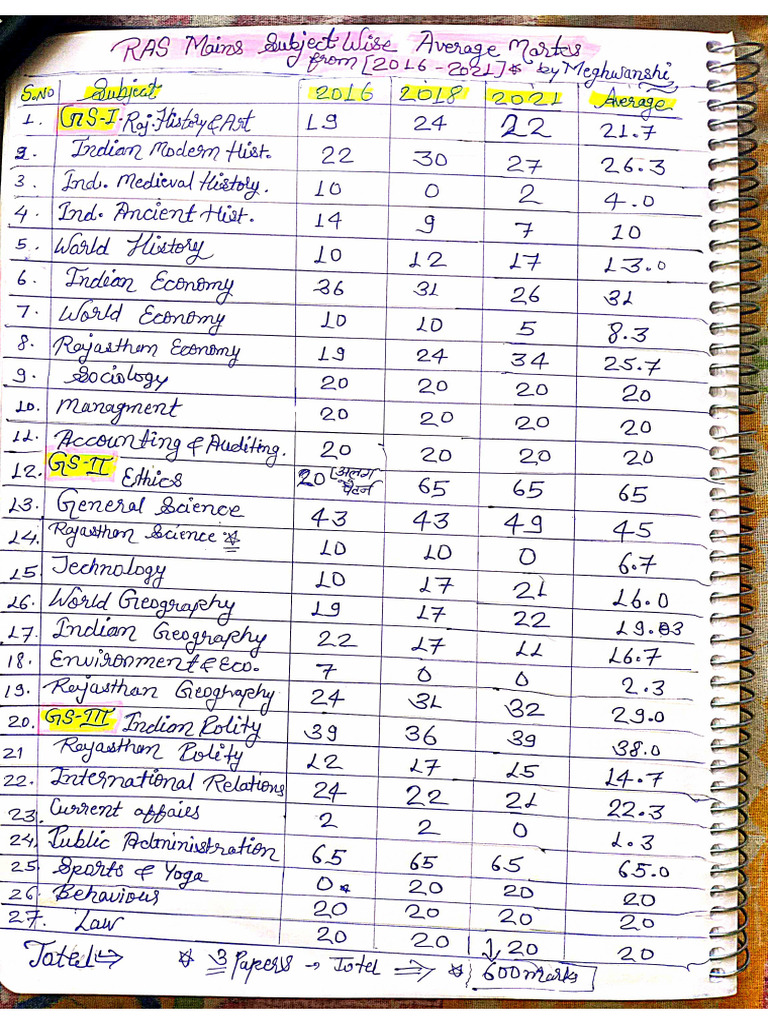 RAS Mains Subject Wise Average Marks
from [2016-2021]* by Meghwanshi
S.NO Subject 2016 2018 2021 Average
1. GS-I. Raj. History & Art 19 24 22 21.7
2. Indian Modern Hist. 22 30 27 26.3
3. Ind. Medieval History. 10 0 2 4.0
4. Ind. Ancient Hist. 14 9 7 10
5. World History 10 12 17 13.0
6. Indian Economy 36 31 26 31
7. World Economy 10 10 5 8.3
8. Rajasthan Economy 19 24 34 25.7
9. Sociology 20 20 20 20
10. Managment 20 20 20 20
11. Accounting & Auditing. 20 20 20 20
12. GS-II Ethics 20 [अलग पैटर्न 65 65 65
13. General Science 43 43 49 45
14. Rajasthan Science * 10 10 0 6.7
15 Technology 10 17 21 16.0
16. World Geography 19 17 22 19.03
17. Indian Geography 22 17 11 16.7
18. Environment & Eco. 7 0 0 2.3
19. Rajasthan Geography 24 31 32 29.0
20. GS-III Indian Polity 39 36 39 38.0
21 Rajasthan Polity 12 17 15 14.7
22. International Relations 24 22 21 22.3
23. Current affairs 2 2 0 1.3
24. Public Administration 65 65 65 65.0
25. Sports & Yoga 0* 20 20 20
26. Behaviour 20 20 20 20
27. Law 20 20 20 20
Total ⇒ * 3 Papers → Total ⇒ * 600 marks